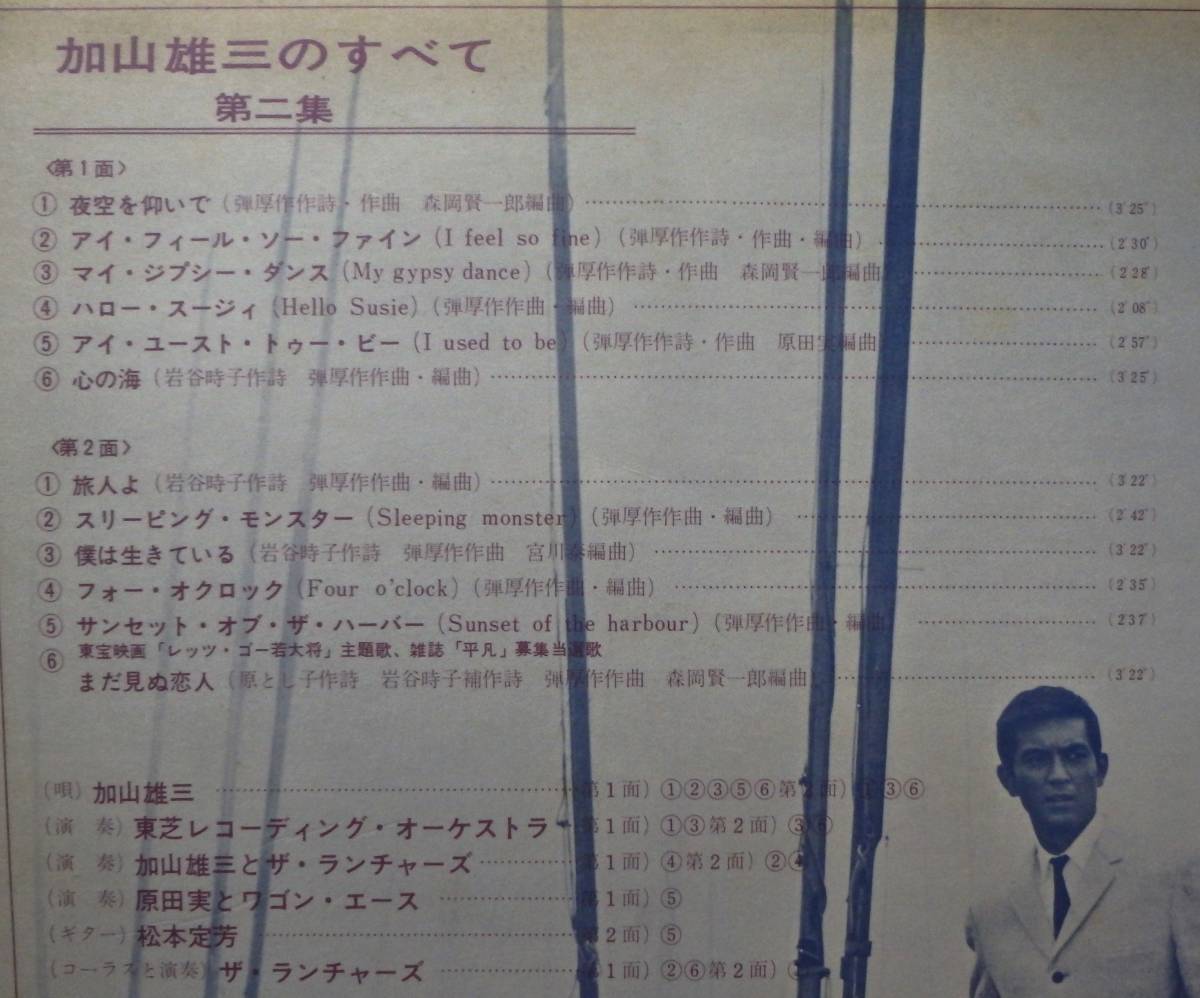 加山雄三のすべて
第二集
〈第1面〉
① 夜空を仰いで（弾厚作作詩・作曲　森岡賢一郎編曲）(3′25″)
② アイ・フィール・ソー・ファイン（I feel so fine）（弾厚作作詩・作曲・編曲）(2′30″)
③ マイ・ジプシー・ダンス（My gypsy dance）（弾厚作作詩・作曲　森岡賢一郎編曲 (2′28″
④ ハロー・スージィ（Hello Susie）（弾厚作作曲・編曲）(2′08″)
⑤ アイ・ユースト・トゥー・ビー（I used to be）（弾厚作作詩・作曲　原田実編曲 (2′57″)
⑥ 心の海（岩谷時子作詩　弾厚作作曲・編曲）(3′25″)
〈第2面〉
① 旅人よ（岩谷時子作詩　弾厚作作曲・編曲）(3′22″)
② スリーピング・モンスター（Sleeping monster）（弾厚作作曲・編曲）(2′42″)
③ 僕は生きている（岩谷時子作詩　弾厚作作曲　宮川泰編曲）(3′22″)
④ フォー・オクロック（Four o'clock）（弾厚作作曲・編曲）(2′35″)
⑤ サンセット・オブ・ザ・ハーバー（Sunset of the harbour）（弾厚作作曲・編曲）(2′37″)
⑥ 東宝映画「レッツ・ゴー若大将」主題歌、雑誌「平凡」募集当選歌
まだ見ぬ恋人（原とし子作詩　岩谷時子補作詩　弾厚作作曲　森岡賢一郎編曲）(3′22″)
（唄）加山雄三 第1面）①②③⑤⑥第2面）①③⑥
（演　奏）東芝レコーディング・オーケストラ 第1面）①③第2面）③⑥
（演　奏）加山雄三とザ・ランチャーズ 第1面）④第2面）②④
（演　奏）原田実とワゴン・エース 第1面）⑤
（ギター）松本定芳 第2面）⑤
（コーラスと演奏）ザ・ランチャーズ 第1面）②⑥第2面）